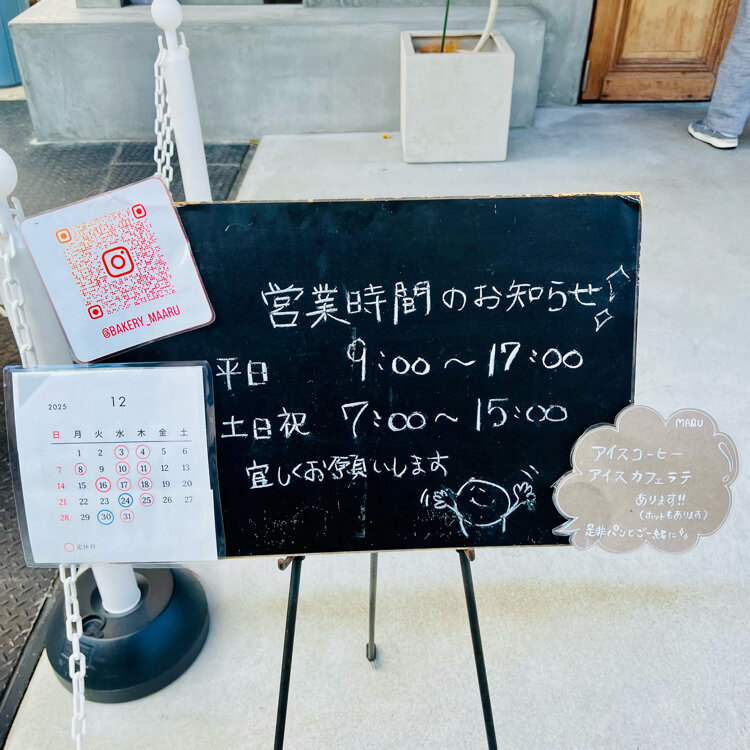 @BAKERY_MAARU
営業時間のお知らせ
平日 9:00〜17:00
土日祝 7:00〜15:00
宜しくお願いします
2025 12
日 月 火 水 木 金 土
1 2 3 4 5 6
7 8 9 10 11 12 13
14 15 16 17 18 19 20
21 22 23 24 25 26 27
28 29 30 31
定休日
MARU
アイスコーヒー
アイスカフェラテ
あります!!
(ホットもあります)
是非パンとご一緒に